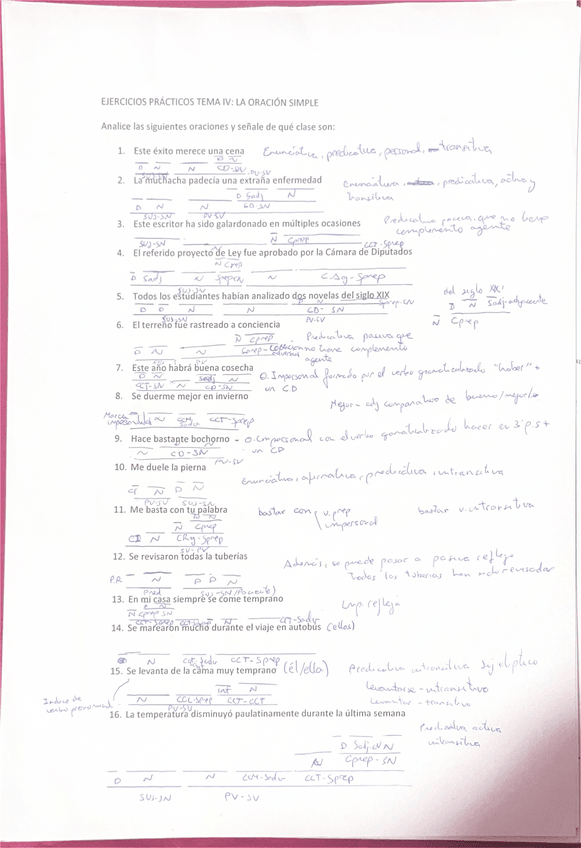 EJERCICIOS PRÁCTICOS TEMA IV: LA ORACIÓN SIMPLE
Analice las siguientes oraciones y señale de qué clase son:
1. Este éxito merece una cena Enunciativa, predicativa, personal, transitiva
D N N CD-SN
2. La muchacha padecía una extraña enfermedad Enunciativa, predicativa, activa y
transitiva
D N N CD-SN
SUJ-SN PV-SV
3. Este escritor ha sido galardonado en múltiples ocasiones Predicativa pasiva que no tiene
complemento agente
SUJ-SN N Cprep CCT-Sprep
4. El referido proyecto de Ley fue aprobado por la Cámara de Diputados
N Cprep
D Sadj N Sprep N C.Ag-Sprep
5. Todos los estudiantes habían analizado dos novelas del siglo XIX del siglo XIX
D D N N CD-SN
N Cprep
6. El terreno fue rastreado a conciencia Predicativa pasiva que
no tiene complemento
agente
D N N
7. Este año habrá buena cosecha O. Impersonal formada por el verbo gramaticalizado "haber" +
un CD
CCT-SN N CD-SN
8. Se duerme mejor en invierno Mejor - adj comparativo de bueno/mejor
Marca
impersonalidad N CCT-Sprep
9. Hace bastante bochorno - O. Impersonal con el verbo gramaticalizado hacer en 3ª p.s +
un CD
N CD-SN
PV-SV
10. Me duele la pierna Enunciativa, afirmativa, predicativa, intransitiva
CI N D N
PV-SV SUJ-SN
11. Me basta con tu palabra bastar con v. prep
impersonal
bastar v. intransitiva
N Cprep
CI N CRg-Sprep
12. Se revisaron todas la tuberías Además, se puede pasar a pasiva refleja
Todas las tuberías han sido revisadas
P.R N D D N
Pred SUJ-SN (Paciente)
13. En mi casa siempre se come temprano Imp refleja
N Cprep-SN
N CCT-Sadv
14. Se marearon mucho durante el viaje en autobús (ellos)
N CCT-Sprep
15. Se levanta de la cama muy temprano (él/ella) Predicativa intransitiva Suj elíptico
Levantarse - intransitivo
Levantar - transitivo
Indice de
verbo pronominal
int N
N CCL-Sprep CCT-CCT
PV-SV
16. La temperatura disminuyó paulatinamente durante la última semana
Predicativa activa
intransitiva
D Sadj N
N Cprep-SN
D N N CCM-Sadv CCT-Sprep
SUJ-SN PV-SV